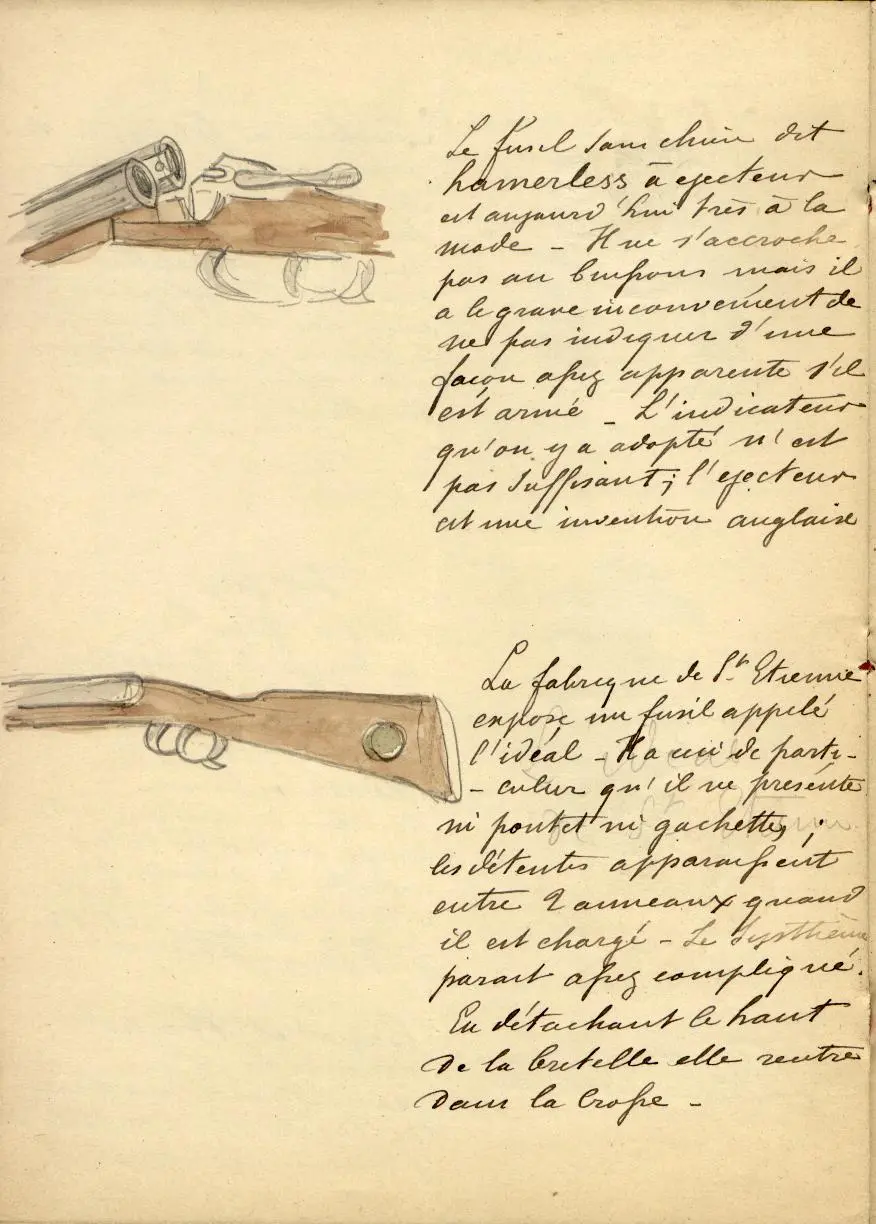 Le fusil sans chien dit
hamerless à ejecteur
est aujourd'hui très à la
mode - Il ne s'accroche
pas au buissons mais il
a le grave inconvenient de
ne pas indiquer d'une
façon assez apparente s'il
est armé - L'indicateur
qu'on y a adopté n'est
pas suffisant; l'ejecteur
est une invention anglaise
La fabrique de St. Etienne
expose un fusil appelé
l'idéal - Il a ceci de parti-
- culier qu'il ne présente
ni pontet ni gachettes;
les détentes apparaissent
entre 2 anneaux quand
il est chargé - Le Systhème
parait assez compliqué.
En détachant le haut
de la bretelle elle rentre
dans la crosse -